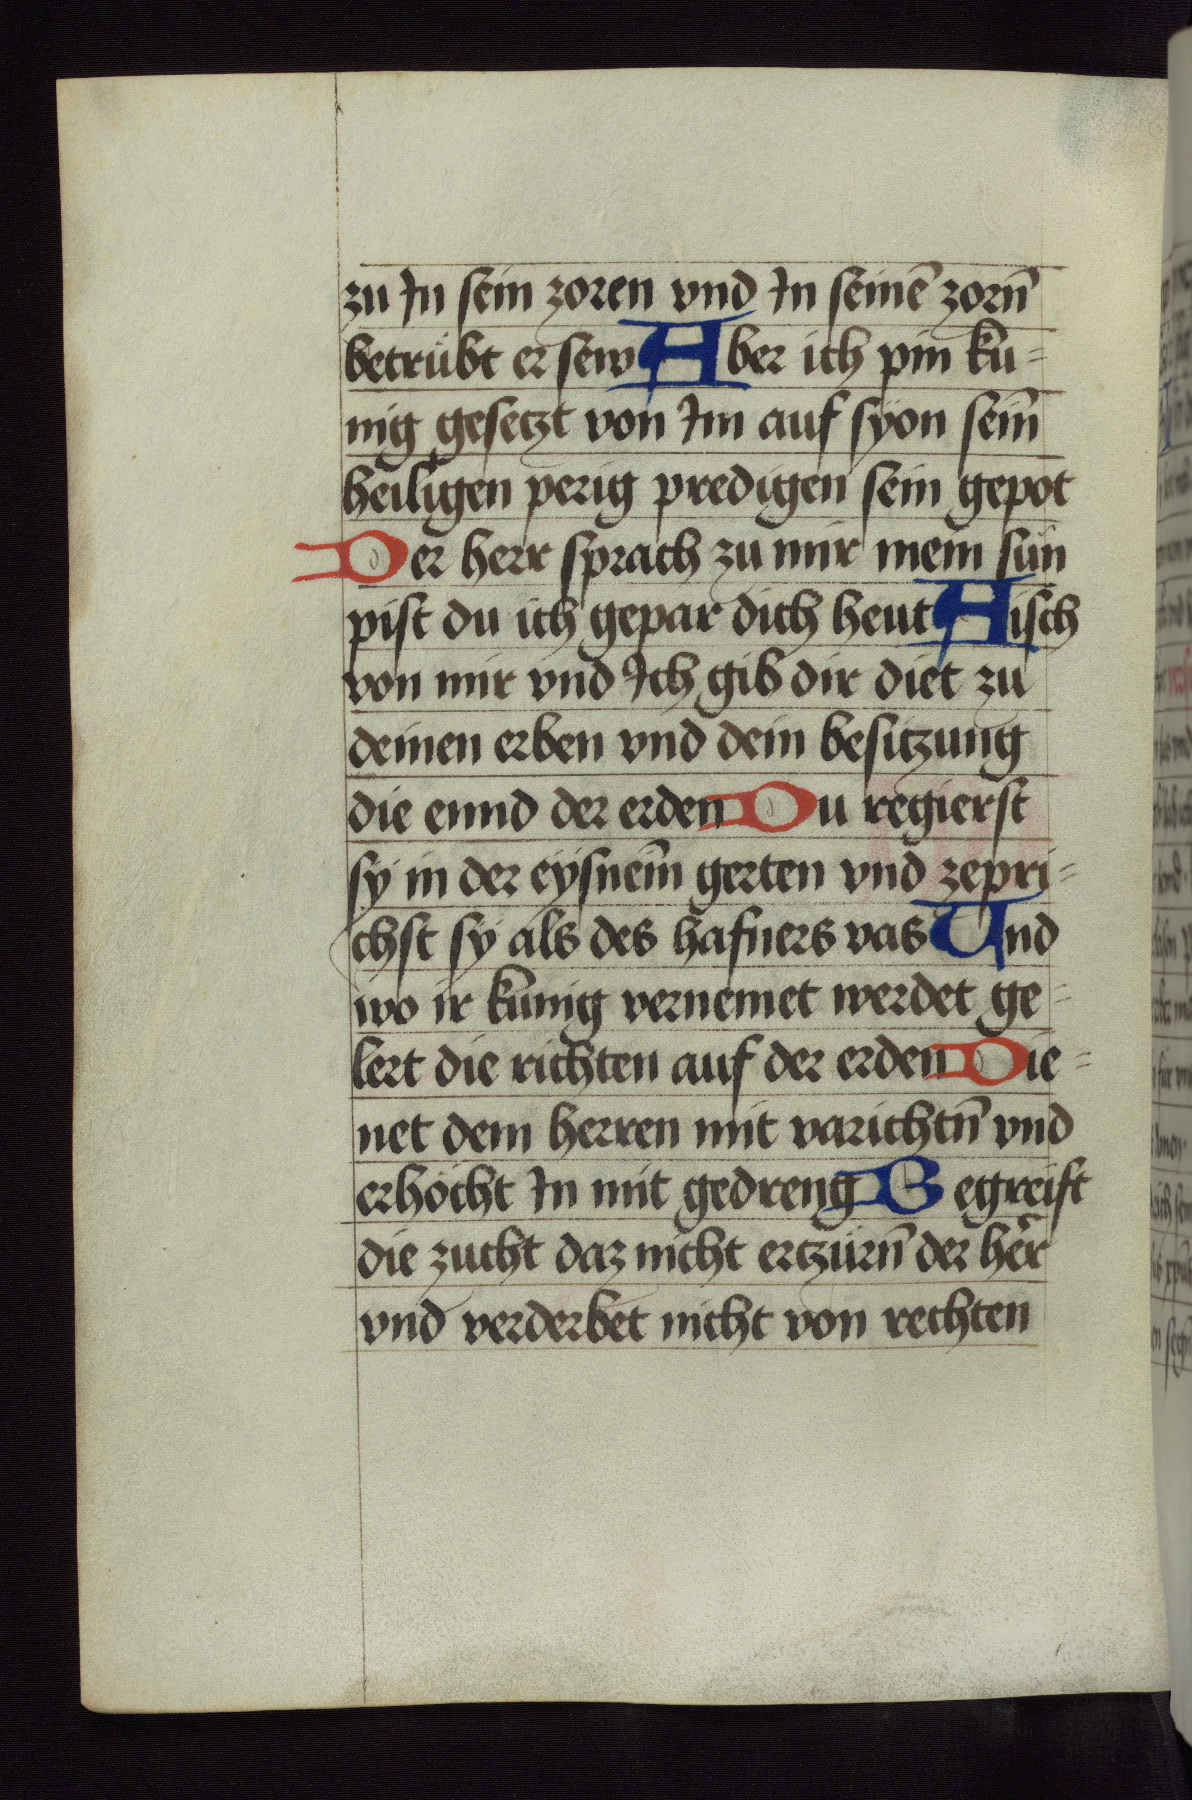 zu Jn sein zoren vnd Jn seinē zorn̄
betrübt er sew Aber ich pin ku-
nig gesetzt von Jm auf syon sein̄
heiligen perig predigen sein gepot
Der herr sprach zu mir mein sun
pist du ich gepar dich heut Aisch
von mir vnd Ich gib dir diet zu
deinen erben vnd dein besitzung
die ennd der erden Du regierst
sy in der eysnein̄ gerten vnd zepri-
chst sy als des hafners vas Vnd
wo ir kunig vernemet werdet ge-
lert die richten auf der erden Die-
net dem herren mit varichtn̄ vnd
erhöcht Jn mit gedreng Begreift
die zucht daz nicht ertzürn̄ der her̄
vnd verderbet nicht von rechten